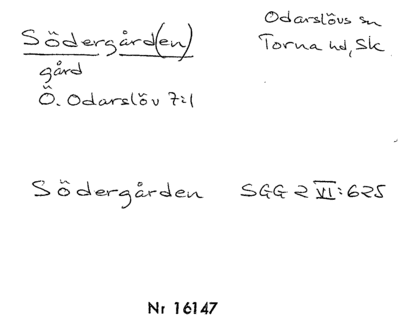 Södergård(en)
Odarslövs sn
Torna hd, Sk
gård
Ö. Odarslöv 7:1
Södergården SGG 2 VI:625
Nr 16147